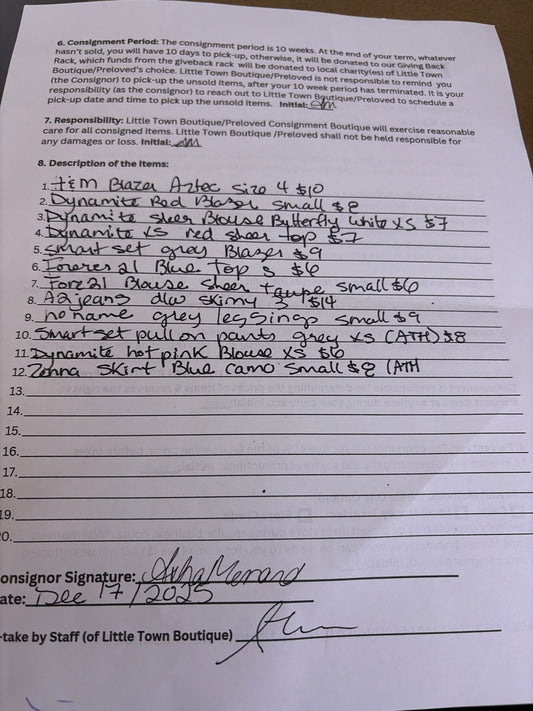 6. Consignment Period: The consignment period is 10 weeks. At the end of your term, whatever
hasn't sold, you will have 10 days to pick-up, otherwise, it will be donated to our Giving Back
Rack, which funds from the giveback rack will be donated to local charity(ies) of Little Town
Boutique/Preloved's choice. Little Town Boutique/Preloved is not responsible to remind you
(the Consignor) to pick-up the unsold items, after your 10 week period has terminated. It is your
responsibility (as the consignor) to reach out to Little Town Boutique/Preloved to schedule a
pick-up date and time to pick up the unsold items. Initial: AM
7. Responsibility: Little Town Boutique/Preloved Consignment Boutique will exercise reasonable
care for all consigned items. Little Town Boutique /Preloved shall not be held responsible for
any damages or loss. Initial: AM
8. Description of the Items:
1. H&M Blazer Aztec size 4 $10
2. Dynamite Red Blazer small $8
3. Dynamite sheer Blouse Butterfly white XS $7
4. Dynamite XS red sheer top $7
5. smart set grey Blazer $9
6. Forever 21 Blue Top S $6
7. Fore 21 Blouse sheer taupe small $6
8. A2 jeans dlw skinny $14
9. no name grey leggings small $9
10. Smart set pull on pants grey xs (ATH) $8
11. Dynamite hot pink Blouse XS $6
12. Zenna Skirt Blue camo small $8 (ATH
13.
14.
15.
16.
17.
18.
19.
0.
onsignor Signature:
ate: Dec 17/2025
-take by Staff (of Little Town Boutique)